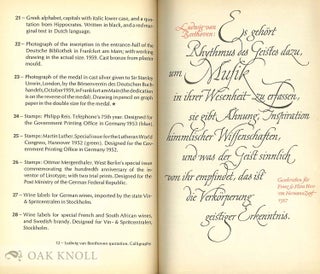 21 – Greek alphabet, capitals with italic lower case, and a quotation from Hippocrates. Written in black, and a red marginal text in Dutch language.
22 – Photograph of the inscription in the entrance-hall of the Deutsche Bibliothek in Frankfurt am Main; with working drawing in the actual size. 1959. Cast bronze from plaster mould.
23 – Photograph of the medal in cast silver given to Sir Stanley Unwin, London, by the Börsenverein des Deutschen Buchhandels, October 1959, in Frankfurt am Main the dedication is on the reverse of the medal. Drawing in pencil on graph paper in the double size of the medal. ★
24 – Stamps: Philipp Reis. Telephone's 75th year. Designed for the Government Printing Office in Germany 1952 (blue).
25 – Stamps: Martin Luther. Special issue for the Lutheran World Congress, Hannover 1952 (green). Designed for the Government Printing Office in Germany 1952.
26 – Stamps: Ottmar Mergenthaler. West Berlin's special issue commemorating the hundredth anniversary of the inventor of Linotype, with two trial prints. Designed for the Post Ministry of the German Federal Republic.
27 – Wine labels for German wines, imported by the state Vin- & Spritcentralen, Stockholm.
28 – Wine labels for special French and South African wines, and Swedish brandy. Designed for Vin- & Spritcentralen, Stockholm.
12 – Ludwig van Beethoven quotation. Calligraphy
Ludwig van
Beethoven:
Es gehört
Rhythmus des Geistes dazu,
um Musik
in ihrer Wesenheit zu erfassen,
sie gibt Ahnung, Inspiration
himmlischer Wissenschaften,
und was der Geist sinnlich
von ihr empfindet, das ist
die Verkörperung
geistiger Erkenntnis.
Geschrieben für
von Hermann Zapf
© OAK KNOLL